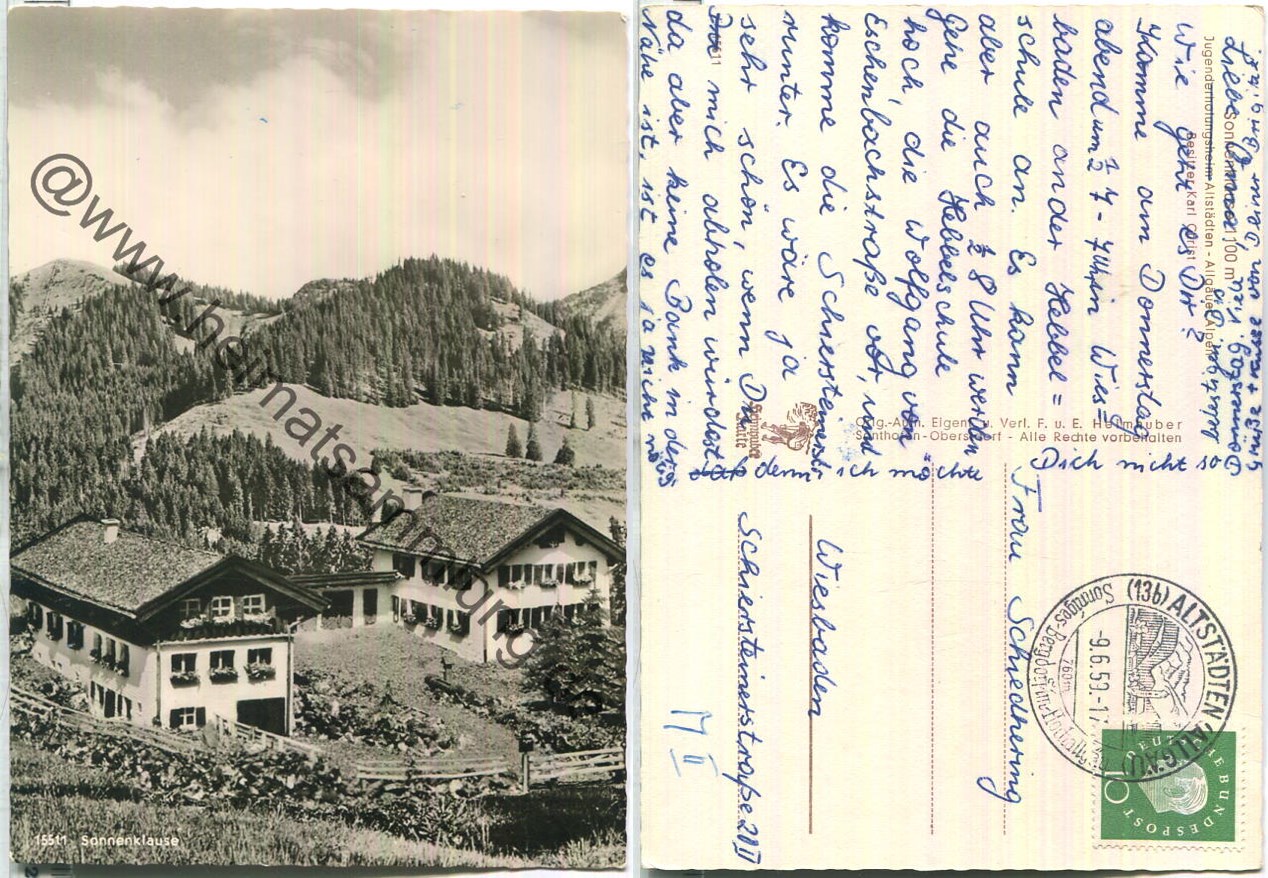 15511 Sonnenklause
@www.heimatsammlung.de
Sonnenklause 1100 m
Jugenderholungsheim Altstädten - Allgäuer Alpen
Besitzer Karl Christ
Liebe
Wie geht es Dir?
Komme am Donnerstag
abend um ½ 7 - 7 Uhr in Wies=
baden an der Hebbel=
schule an. Es kann
aber auch ½ 8 Uhr werden
Gehe die Hebbelschule
hoch, die Wolfgang von
Eschenbachstraße vor, und
komme die Schiersteinerstr
runter. Es wäre ja
sehr schön, wenn Du
mich abholen würdest
da aber keine Bank in der
Nähe ist, ist es ja nicht nötig
denn ich möchte
Dich nicht so
Grüße + Küsse von Deiner Brigitte
Schöning Karte
15511
Orig.-Aufn. Eigent. u. Verl. F. u. E. Heimhuber
Sonthofen-Oberstdorf - Alle Rechte vorbehalten
Frau Schiedhering
Wiesbaden
Schiersteinerstraße 20 II
(13b) ALTSTÄDTEN (ALLGÄU)
-9.6.59.-17
760m
DEUTSCHE BUNDESPOST
10